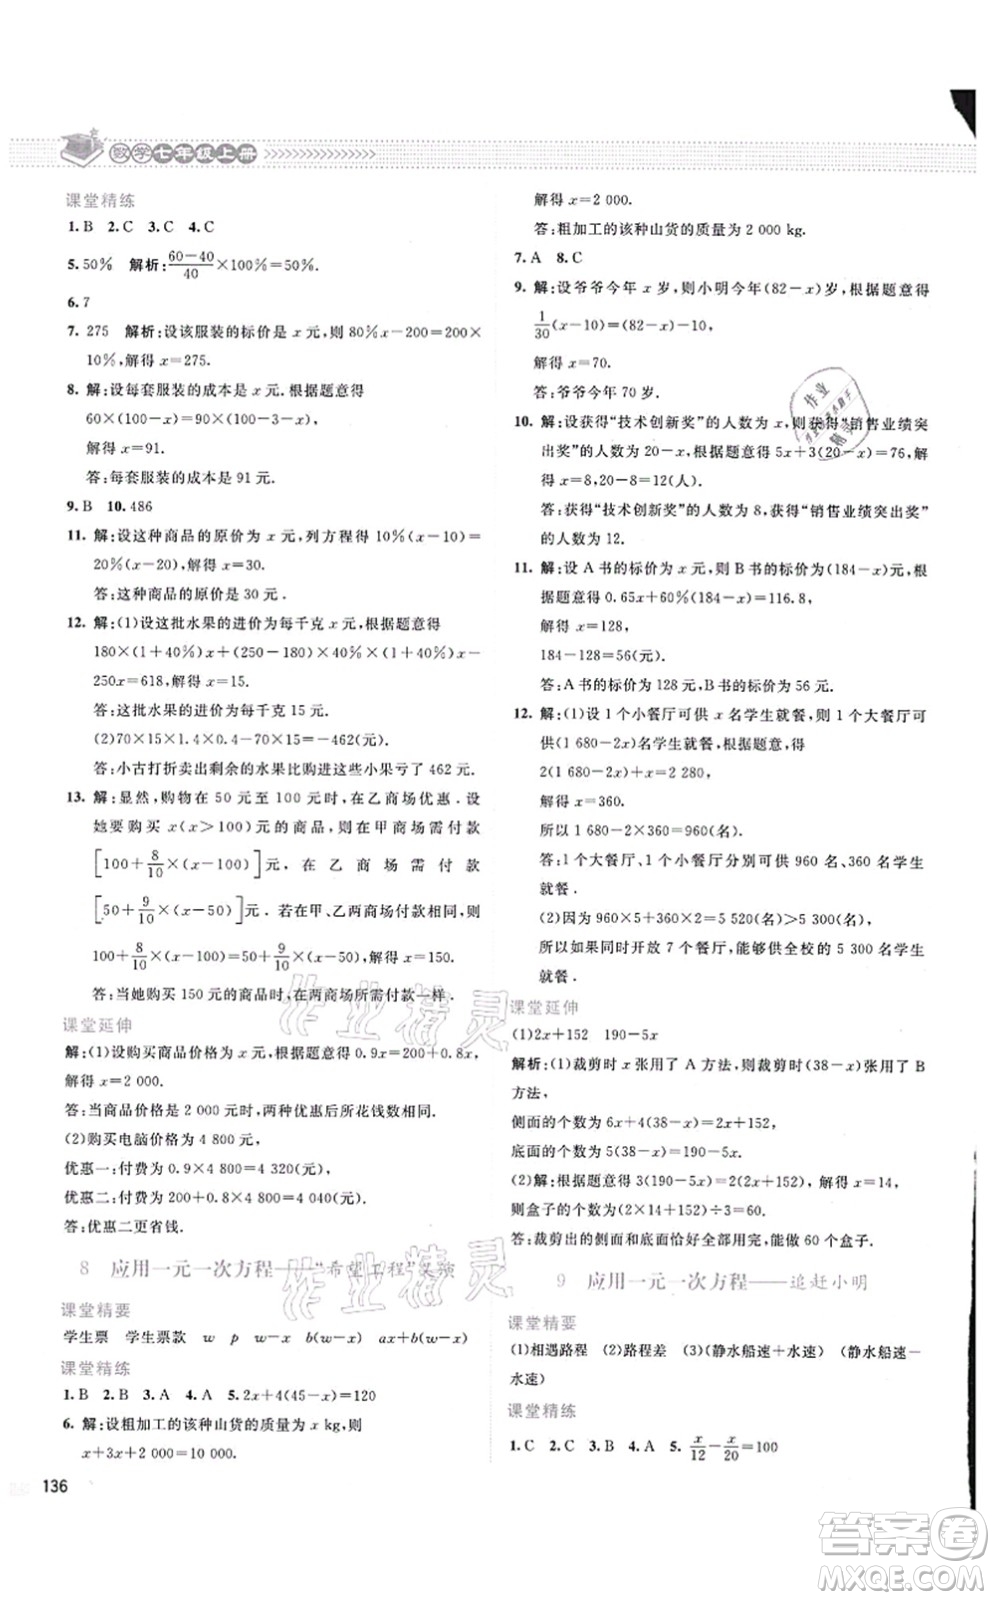 数学七年级上册
课堂精练
1. B 2. C 3. C 4. C
5. 50% 解析:(60-40)/40×100%=50%.
6. 7
7. 275 解析:设该服装的标价是 x 元,则 80%x-200=200×
10%,解得 x=275.
8. 解:设每套服装的成本是 x 元.根据题意得
60×(100-x)=90×(100-9-x),
解得 x=91.
答:每套服装的成本是 91 元.
9. B 10. 486
11. 解:设这种商品的原价为 x 元,列方程得 10%(x-10)=
20%(x-20),解得 x=30.
答:这种商品的原价是 30 元.
12. 解:(1)设这批水果的进价为每千克 x 元,根据题意得
180×(1+40%)x+(250-180)×(1+40%)x×40%-
250x=618,解得 x=15.
答:这批水果的进价为每千克 15 元.
(2)70×15×1.4×0.4-70×15=-462(元).
答:小古打折卖出剩余的水果比购进这些小果亏了 462 元.
13. 解:显然,购物在 50 元至 100 元时,在乙商场优惠.设
她要购买 x(x>100)元的商品,则在甲商场需付款
[100+8/10×(x-100)]元,在乙商场需付款
[50+9/10×(x-50)]元.若在甲、乙两商场付款一样,则
100+8/10×(x-100)=50+9/10×(x-50),解得 x=150.
答:当她购买 150 元的商品时,在两商场所需付款一样.
课堂延伸
解:(1)设购买商品价格为 x 元,根据题意得 0.9x=200+0.8x,
解得 x=2 000.
答:当商品价格为 2 000 元时,两种优惠后所花钱数相同.
(2)购买电脑价格为 4 800元,
优惠一:付费为 0.9×4 800=4 320(元),
优惠二:付费为 200+0.8×4 800=4 040(元),
答:优惠二更省钱.
8 应用一元一次方程——“希望工程”义演
课堂精要
学生票 学生票款 w p w-x b(w-x) ax+b(w-x)
课堂精练
1. B 2. B 3. A 4. A 5. 2x+4(45-x)=120
6. 解:设粗加工的该种山货的质量为 x kg,则
x+3x+2 000=10 000.
136
解得 x=2 000.
答:粗加工的该种山货的质量为 2 000 kg.
7. A 8. C
9. 解:设爷爷今年 x 岁,则小明今年(82-x)岁,根据题意得
1/30(x-10)=(82-x)-10,
解得 x=70.
答:爷爷今年 70 岁.
10. 解:设获得“技术创新奖”的人数为 x,则获得“销售业绩突
出奖”的人数为 20-x.根据题意得 5x+3(20-x)=76,解
得 x=8, 20-8=12(人).
答:获得“技术创新奖”的人数为 8,获得“销售业绩突出奖”的
人数为 12.
11. 解:设 A 书的标价为 x 元,则 B 书的标价为(184-x)元,根
据题意得 0.65x+60%(184-x)=116.8,
解得 x=128,
184-128=56(元).
答:A 书的标价为 128 元,B书的标价为 56 元.
12. 解:(1)设 1 个小餐厅可供 x 名学生就餐,则 1 个大餐厅可
供(1 680-2x)名学生就餐,根据题意,得
2(1 680-2x)+x=2 280,
解得 x=360.
所以 1 680-2×360=960(名).
答:1 个大餐厅、1 个小餐厅分别可供 960 名、360 名学生
就餐.
(2)因为 960×5+360×2=5 520(名)>5 300(名),
所以如果同时开放 7 个餐厅,能够供全校的 5 300 名学生
就餐.
课堂延伸
(1)2x+152 190-5x
解析:(1)裁剪时 x 张用了 A 方法,则裁剪时(38-x)张用了 B
方法,
侧面的个数为 6x+4(38-x)=2x+152,
底面的个数为 5(38-x)=190-5x.
(2)解:根据题意得 3(190-5x)=2(2x+152),解得 x=14,
则盒子的个数为 (2×14+152)÷3=60.
答:裁剪出的侧面和底面恰好全部用完,能做 60 个盒子.
9 应用一元一次方程——追赶小明
课堂精要
(1)相遇路程 (2)路程差 (3)(静水船速+水速) (静水船速-
水速)
课堂精练
1. C 2. C 3. B 4. A 5. x/12-x/20=100
作业精灵
作业精灵
作业
精灵
答案卷
MXQE.COM